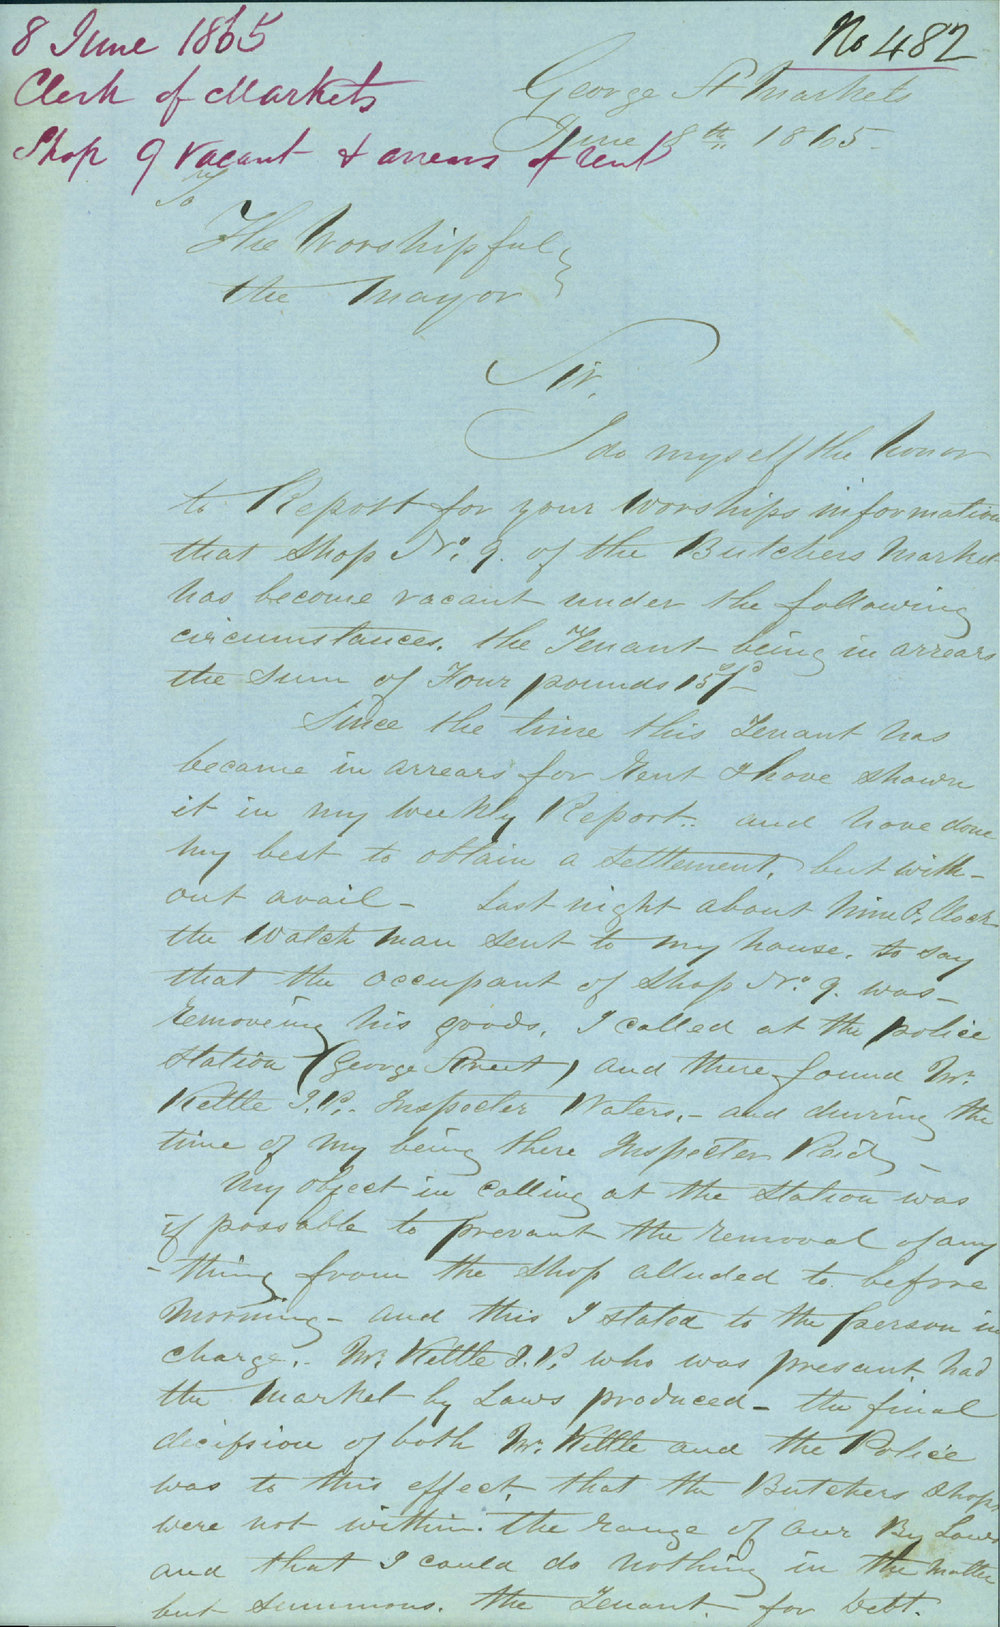 8 June 1865
No 482
Clerk of Markets
George St Markets
June 8th 1865
Shop 9 vacant & arrears of rent
To
The Worshipful
the Mayor
Sir,
I do myself the honor
to Report for your Worships information
that Shop No. 9. of the Butchers Market
has become vacant under the following
circumstances. the Tenant being in arrears
the sum of Four pounds 15/-
Since the time this Tenant has
became in arrears for Rent I have shown
it in my weekly Report.. and have done
my best to obtain a settlement, but with-
out avail - Last night about Nine O, Clock
the Watch man sent to my house. to say
that the occupant of Shop No. 9. was-
removeing his goods. I called at the police
Station (George Street) and there found Mr.
Kettle J.P.- Inspecter Waters,- and durring the
time of my being there Inspecter Reid,-
My object in calling at the Station was
if possable to prevant the removal of any
-thing from the Shop alluded to before
Morning- and this I stated to the person in
charge.- Mr. Kettle J.P. who was presant, had
the Market by Laws produced- the final
decission of both Mr. Kettle and the Police
was to this effect, that the Butchers Shops
were not within the range of our By Laws
and that I could do nothing in the Matter
but summons. the Tenant. for Debt.